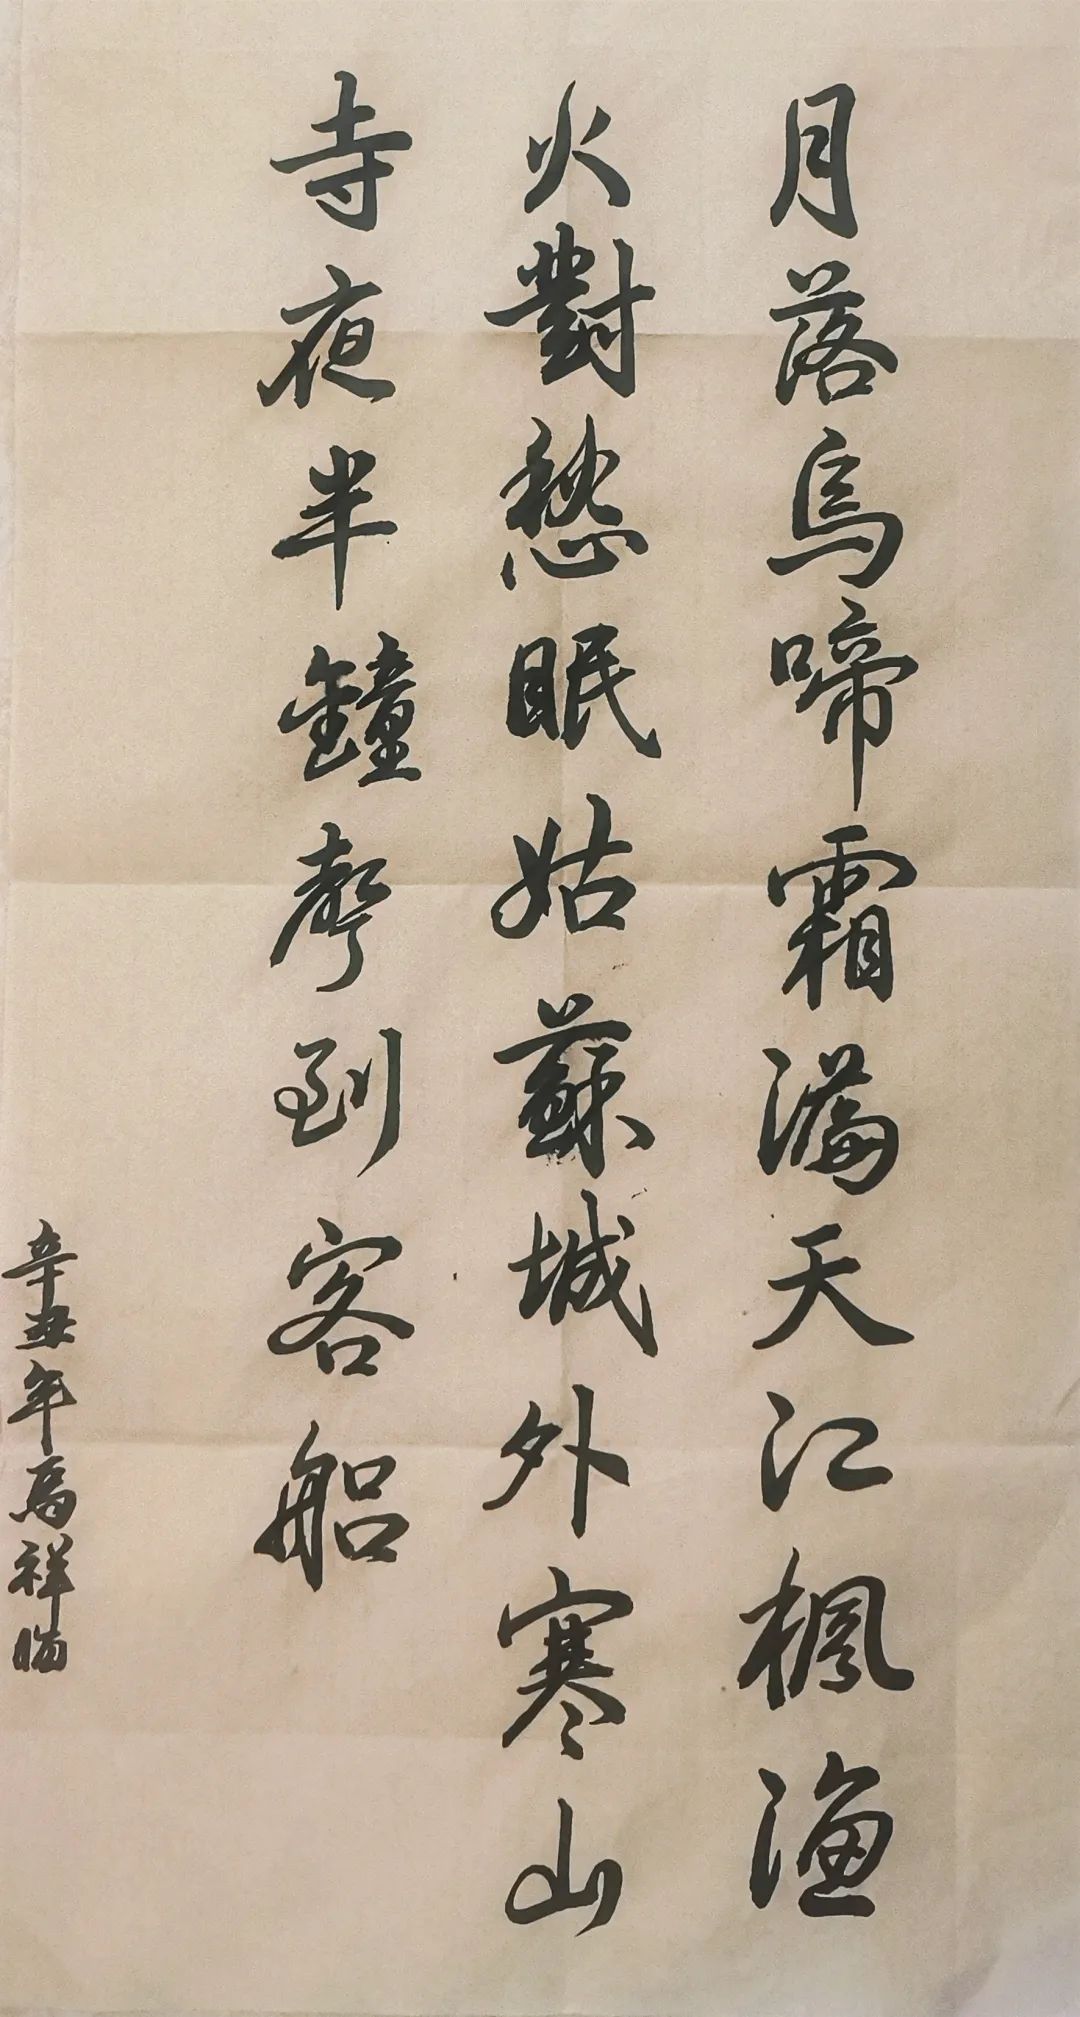 月落烏啼霜滿天江楓漁
火對愁眠姑蘇城外寒山
寺夜半鐘聲到客船
辛丑年高祥臨